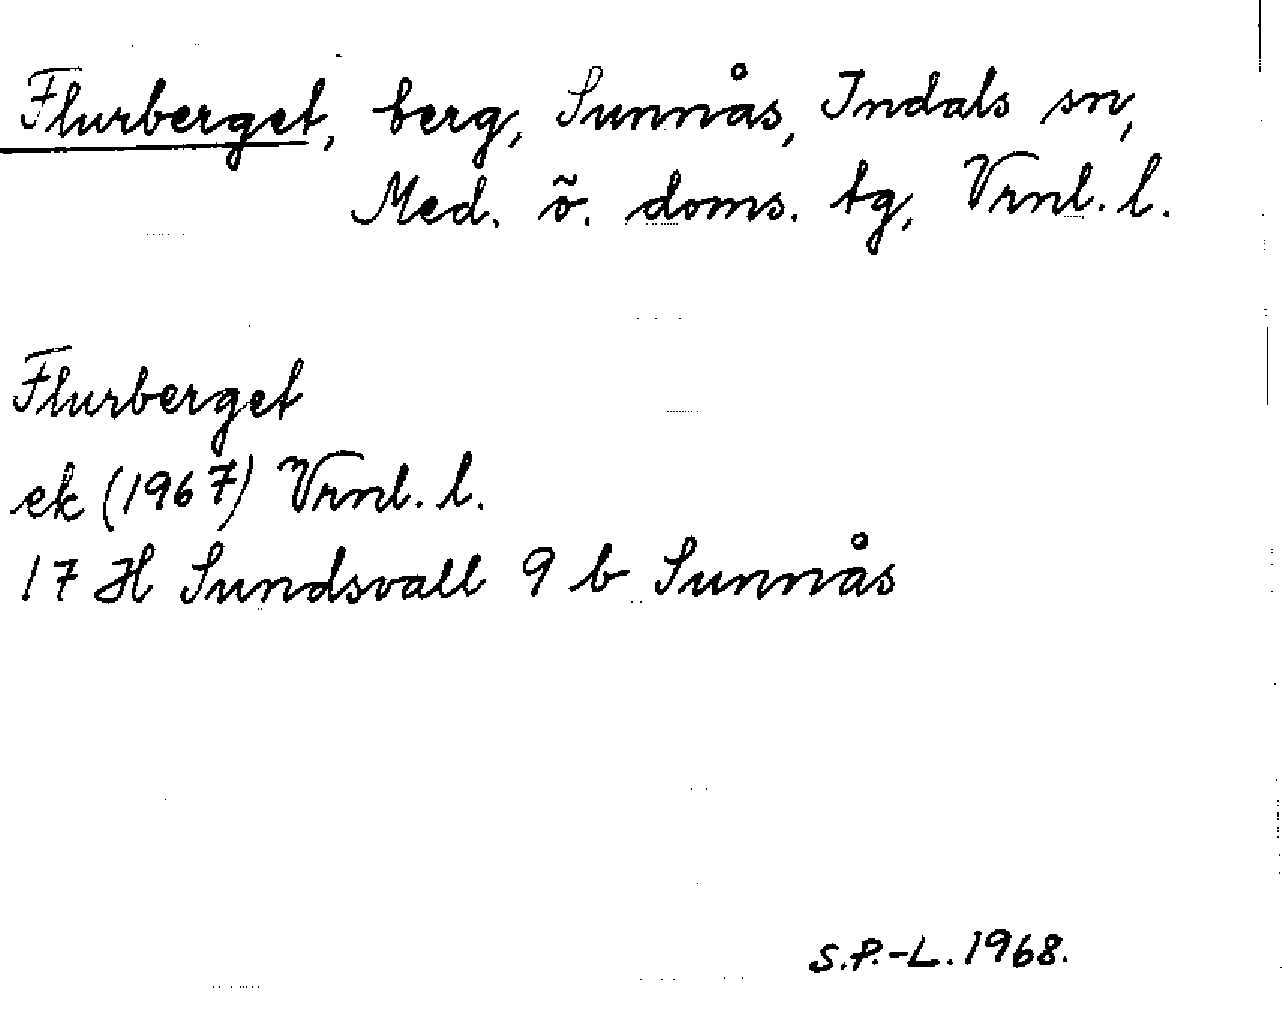 Flurberget, berg, Sunnås, Indals sn,
Med. ö. doms. tg, Vrnl. l.
Flurberget
ek (1967) Vrnl. l.
17 H Sundsvall 9 b Sunnås
S.P.-L. 1968.